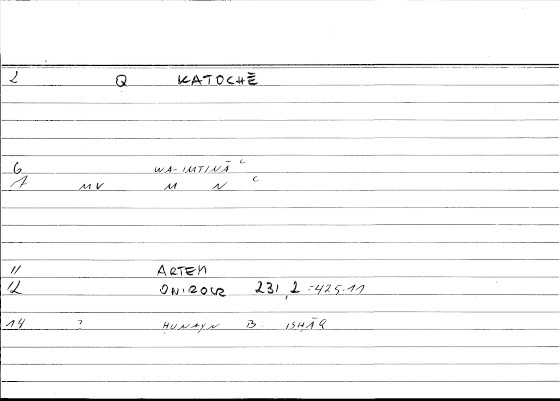 2 Q KATOCHĒ
6 WA-IMTINĀ c
7 MV M N c
11 ARTEM
12 ONIROCR 231,2 =425.11
14 ? ḤUNAYN B. ISḤĀQ